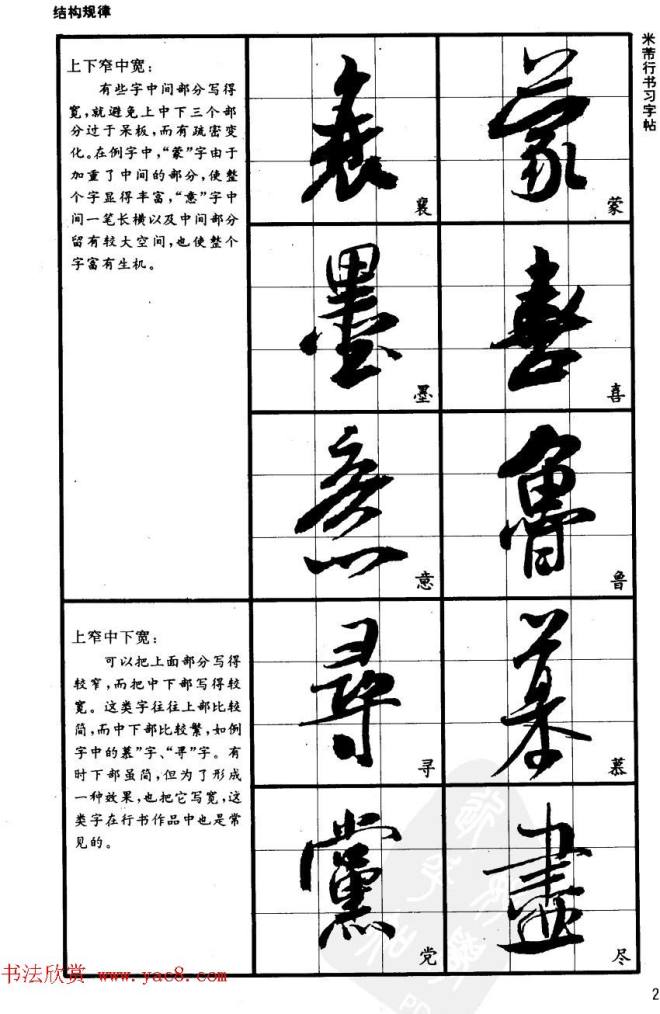 结构规律
米芾行书习字帖
上下窄中宽:
有些字中间部分写得
宽,就避免上中下三个部
分过于呆板,而有疏密变
化。在例字中,“蒙”字由于
加重了中间的部分,使整
个字显得丰富,“意”字中
间一笔长横以及中间部分
留有较大空间,也使整个
字富有生机。
蒙
襄
喜
墨
鲁
意
上窄中下宽:
可以把上面部分写得
较窄,而把中下部写得较
宽。这类字往往上部比较
简,而中下部比较繁,如例
字中的慕”字、“寻”字。有
时下部虽简,但为了形成
一种效果,也把它写宽,这
类字在行书作品中也是常
见的。
慕
寻
尽
党
书法欣赏 www.yac8.com
2